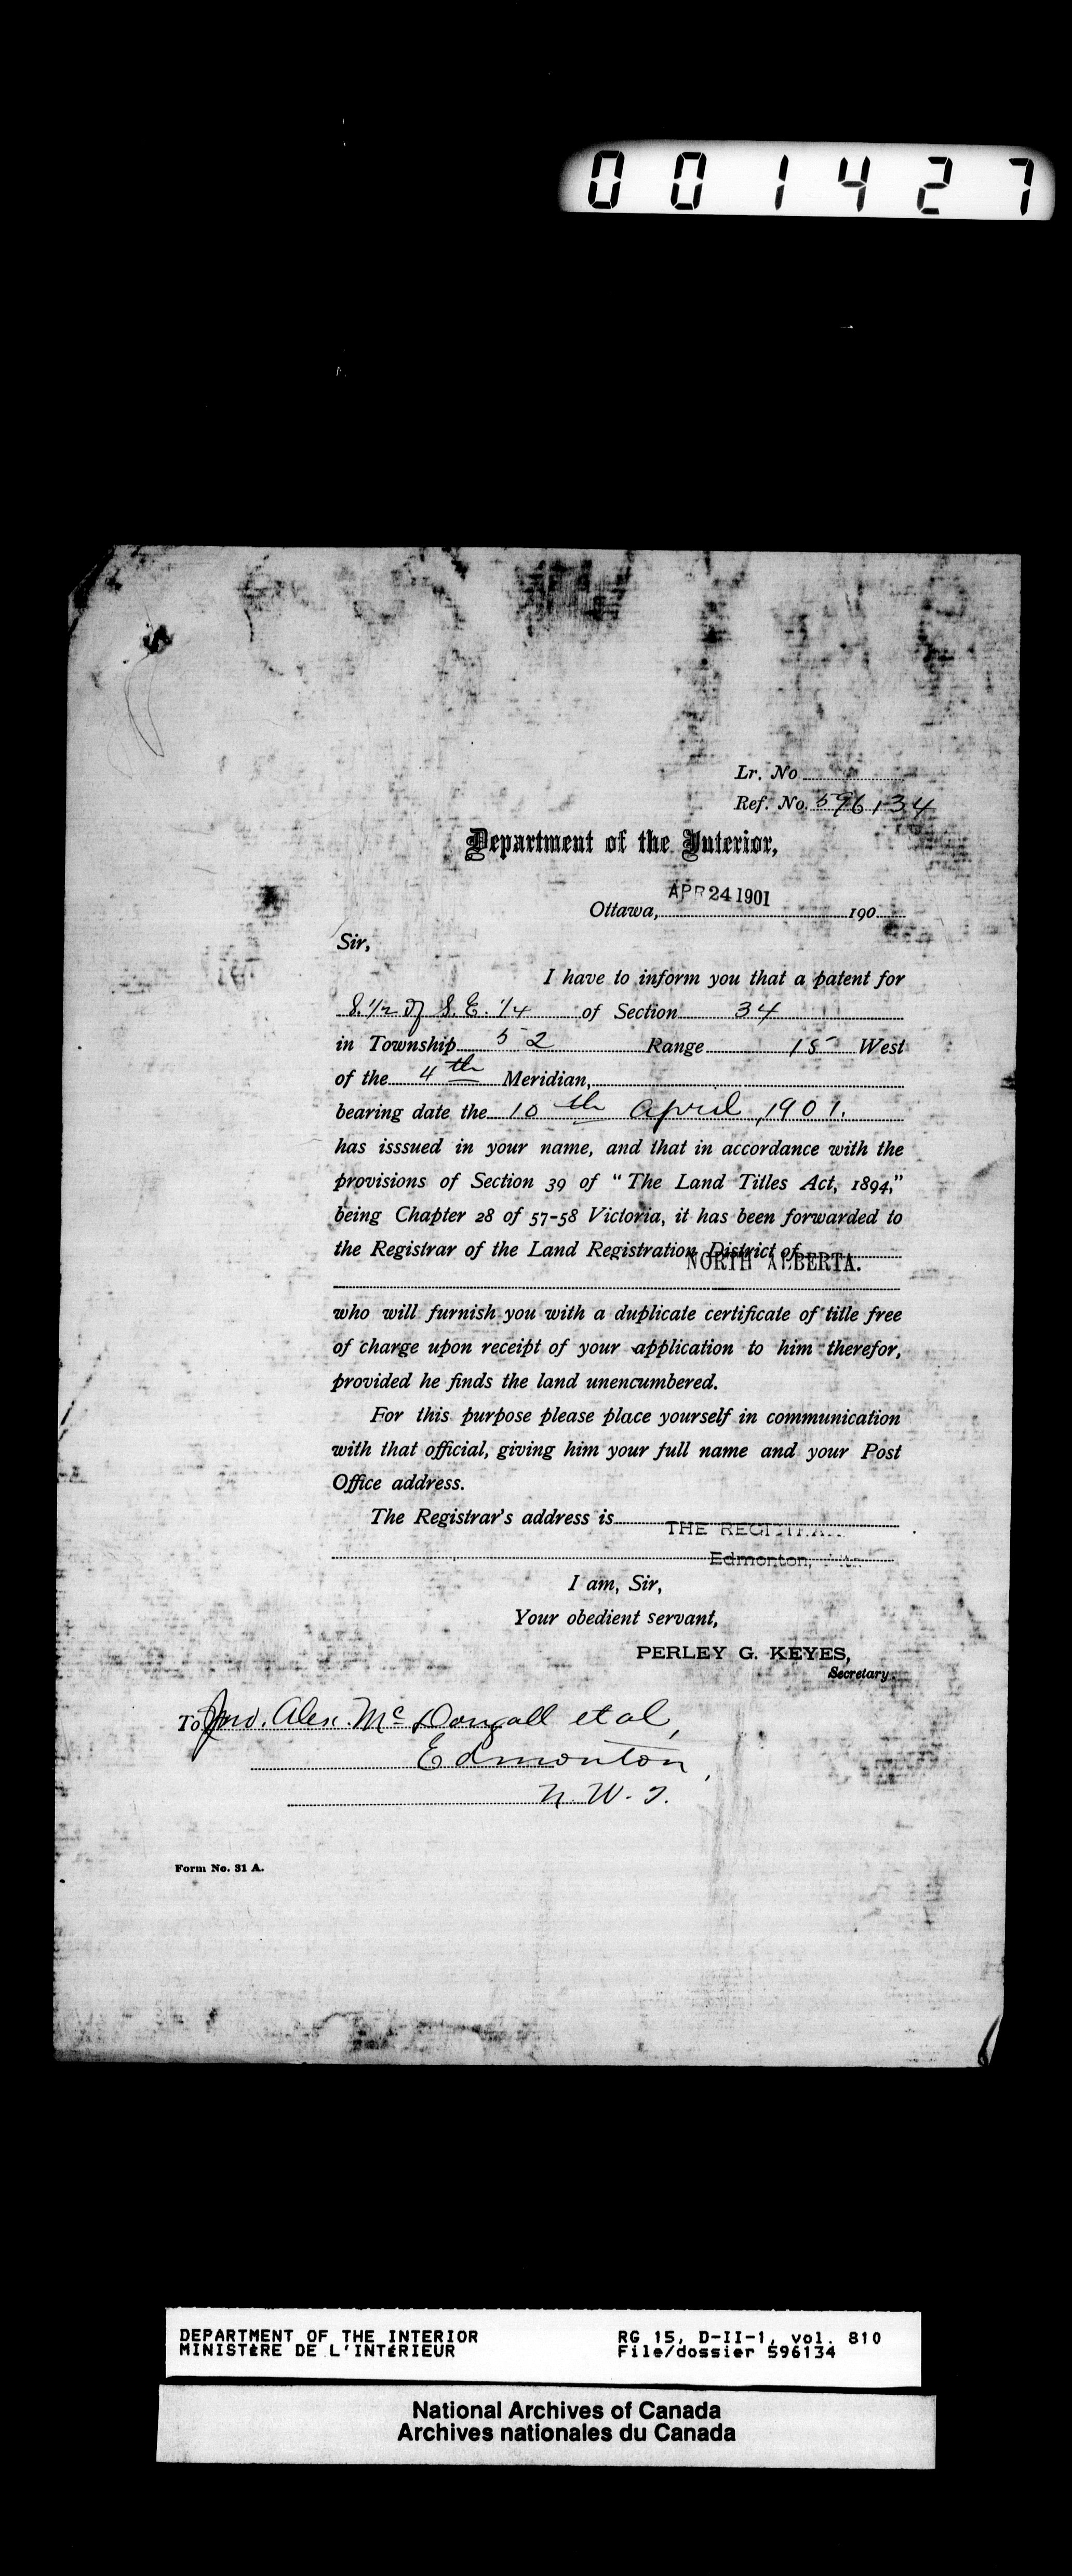 001427
Lr. No
Ref. No. 596134
Department of the Interior,
APR 24 1901
Ottawa, 190
Sir,
I have to inform you that a patent for
S. 1/2 of S. E. 1/4 of Section 34
in Township 52 Range 15 West
of the 4th Meridian,
bearing date the 10th April, 1901.
has isssued in your name, and that in accordance with the
provisions of Section 39 of "The Land Titles Act, 1894,"
being Chapter 28 of 57-58 Victoria, it has been forwarded to
the Registrar of the Land Registration District of
NORTH ALBERTA.
who will furnish you with a duplicate certificate of title free
of charge upon receipt of your application to him therefor,
provided he finds the land unencumbered.
For this purpose please place yourself in communication
with that official, giving him your full name and your Post
Office address.
The Registrar's address is
THE REGISTRAR
Edmonton,
I am, Sir,
Your obedient servant,
PERLEY G. KEYES,
Secretary.
To Jno. Alex. Mc Dougall et al,
Edmonton,
N. W. T.
Form No. 31 A.
DEPARTMENT OF THE INTERIOR RG 15, D-II-1, vol. 810
MINISTÈRE DE L'INTÉRIEUR File/dossier 596134
National Archives of Canada
Archives nationales du Canada